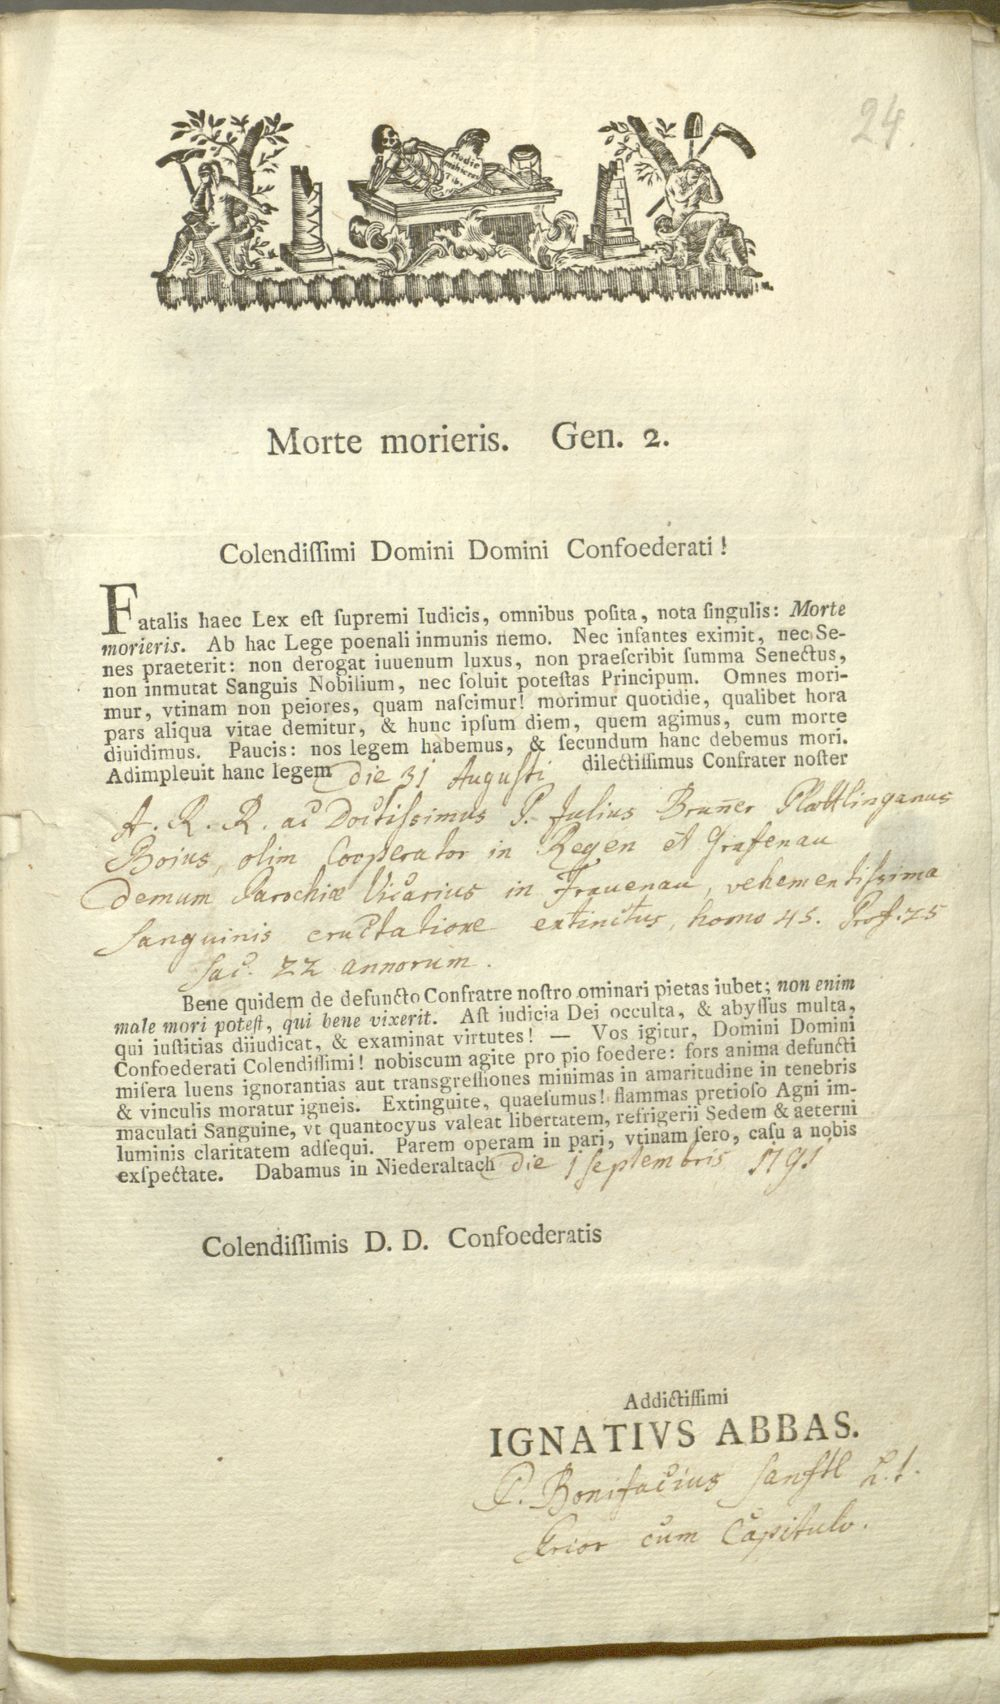 24.
Hodie
mihi cras
Tibi
Morte morieris. Gen. 2.
Colendiſſimi Domini Domini Confoederati!
Fatalis haec Lex eſt ſupremi Iudicis, omnibus poſita, nota ſingulis: Morte
morieris. Ab hac Lege poenali inmunis nemo. Nec infantes eximit, nec Se-
nes praeterit: non derogat iuuenum luxus, non praeſcribit ſumma Senectus,
non inmutat Sanguis Nobilium, nec ſoluit poteſtas Principum. Omnes mori-
mur, vtinam non peiores, quam naſcimur! morimur quotidie, qualibet hora
pars aliqua vitae demitur, & hunc ipſum diem, quem agimus, cum morte
diuidimus. Paucis: nos legem habemus, & ſecundum hanc debemus mori.
Adimpleuit hanc legem die 31 Augusti dilectiſſimus Confrater noſter
A. R. R. ac Doctiſsimus P. Julius Bruñer Plattlinganus
Boius, olim Cooperator in Regen et Grafenau
demum Parochiæ Vicarius in Frauenau, vehementiſsima
sanguinis eructatione extinctus, homo 45. Prof. 25
Sac. 22 annorum.
Bene quidem de defuncto Confratre noſtro ominari pietas iubet; non enim
male mori poteſt, qui bene vixerit. Aſt iudicia Dei occulta, & abyſſus multa,
qui iuſtitias diiudicat, & examinat virtutes! — Vos igitur, Domini Domini
Confoederati Colendiſſimi! nobiscum agite pro pio foedere: fors anima defuncti
miſera luens ignorantias aut transgreſſiones minimas in amaritudine in tenebris
& vinculis moratur igneis. Extinguite, quaeſumus! flammas pretioſo Agni im-
maculati Sanguine, vt quantocyus valeat libertatem, refrigerii Sedem & aeterni
luminis claritatem adſequi. Parem operam in pari, vtinam ſero, caſu a nobis
exſpectate. Dabamus in Niederaltach die 1 septembris 1791
Colendiſſimis D. D. Confoederatis
Addictiſſimi
IGNATIVS ABBAS.
P. Bonifacius Sanftl p. t.
Prior cum Capitulo.